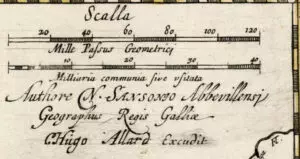 Scalla
20 40 60 80 100 120
Mille Passus Geometrici
10 20 30 40 50
Milliaria communia sive usitata
Authore N. SANSONIO Abbevillensi
Geographus Regis Galliæ
C. Hugo Allard Excudit